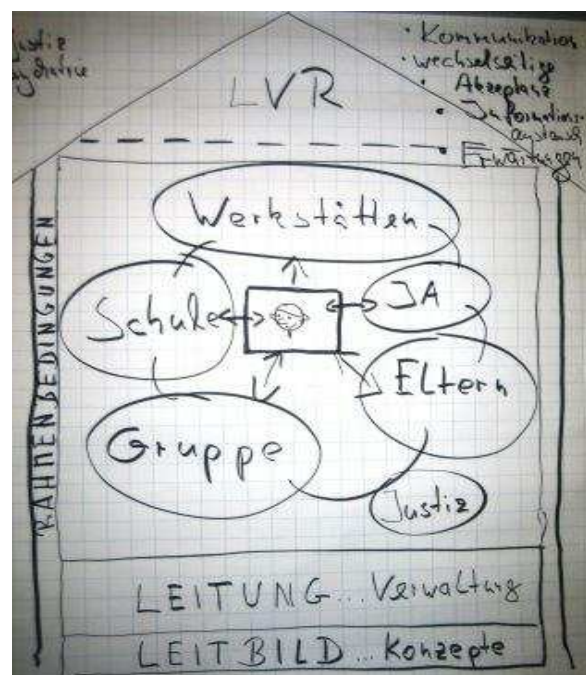 Justiz
• Kommunikation
• wechselseitige
• Akzeptanz
• Informations-
austausch
• Erwartungen
LVR
RAHMENBEDINGUNGEN
Werkstätten
Schule
JA
Eltern
Gruppe
Justiz
LEITUNG... Verwaltung
LEITBILD... Konzepte